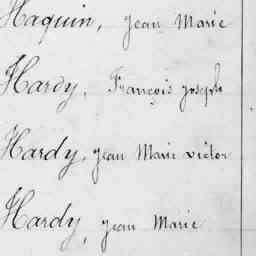 Haquin, Jean Marie
Hardy, François Joseph
Hardy, Jean Marie victor
Hardy, Jean Marie